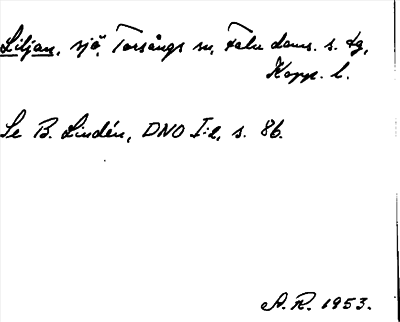 Liljan, sjö, Torsångs sn, Falu doms. s. tg,
Kopp. l.
Se B. Lindén, DNO I:2, s. 86.
A. R. 1953.